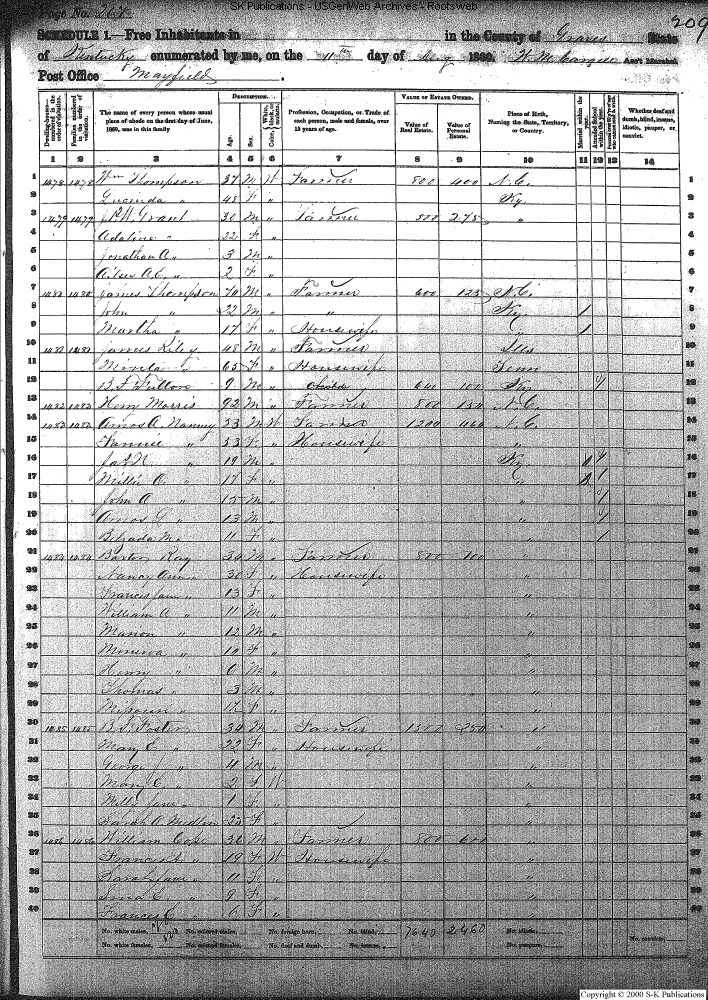 SK Publications - USGenWeb Archives - Rootsweb
Page No. 267
209
SCHEDULE 1.—Free Inhabitants in in the County of Graves State
of Kentucky enumerated by me, on the 11th day of 1860. Ass't Marshal.
Post Office Mayfield.
DESCRIPTION. VALUE OF ESTATE OWNED.
Dwelling-houses numbered in the order of visitation. Families numbered in the order of visitation. The name of every person whose usual place of abode on the first day of June, 1860, was in this family Age. Sex. Color, White, black, or mulatto. Profession, Occupation, or Trade of each person, male and female, over 15 years of age. Value of Real Estate. Value of Personal Estate. Place of Birth, Naming the State, Territory, or Country. Married within the year. Attended School within the year. Whether deaf and dumb, blind, insane, idiotic, pauper, or convict.
1 2 3 4 5 6 7 8 9 10 11 12 13 14
1 1478 1478 Wm Thompson 37 M W Farmer 800 400 N.C. 1
2 Lucinda " 48 F " Ky. 2
3 1479 1479 Grant 30 M " Farmer 500 275 " 3
4 Adaline " 22 F " 4
5 Jonathan A " 3 M " 5
6 " 2 F " 6
7 1480 1480 James Thompson 70 M " Farmer 600 125 N.C. 7
8 John " 22 M " " Ky. 1 8
9 Martha " 17 F " Housewife " 1 9
10 1481 1481 James Riley 48 M " Farmer 10
11 " 65 F " Housewife Tenn 11
12 B. F. Fulton 9 M " 640 100 Ky. 12
13 1482 1482 Henry Morris 92 M " Farmer 800 N.C. 13
14 1483 1483 Amos A. Nanney 33 M W Farmer 1200 N.C. 14
15 Fannie " 33 F " Housewife " 15
16 " 19 M " Ky. 16
17 Millie A. " 17 F " " 17
18 John A " 15 M " " 18
19 Amos G. " 13 M " " 19
20 11 F " " 1 20
21 1484 1484 Ray 39 M " Farmer 800 100 " 21
22 Nancy Ann " 30 F " Housewife 22
23 Frances Jane " 13 F " 23
24 William A " 11 M " 24
25 Marion " 12 M " 25
26 Minerva " 10 F " 26
27 Henry " 6 M " 27
28 Thomas " 3 M " 28
29 17 F " 29
30 1485 1485 B. F. Foster 34 M " Farmer 1300 250 30
31 Mary E. " 22 F " Housewife 31
32 George " M " 32
33 Mary E. " 2 F W 33
34 Milly Jane " 1 F " 34
35 Sarah A. 22 F " 35
36 1486 1486 William Cope 36 M " Farmer 800 600 36
37 " 19 F W Housewife 37
38 Sarah Jane " 11 F " 38
39 " 9 F " 39
40 Frances C. " 6 F " 40
No. white males, No. colored males, No. foreign born, No. blind, 7640 2460 No. idiotic,
No. white females, No. colored females, No. deaf and dumb, No. insane, No. paupers, No. convicts,
Copyright © 2000 S-K Publications